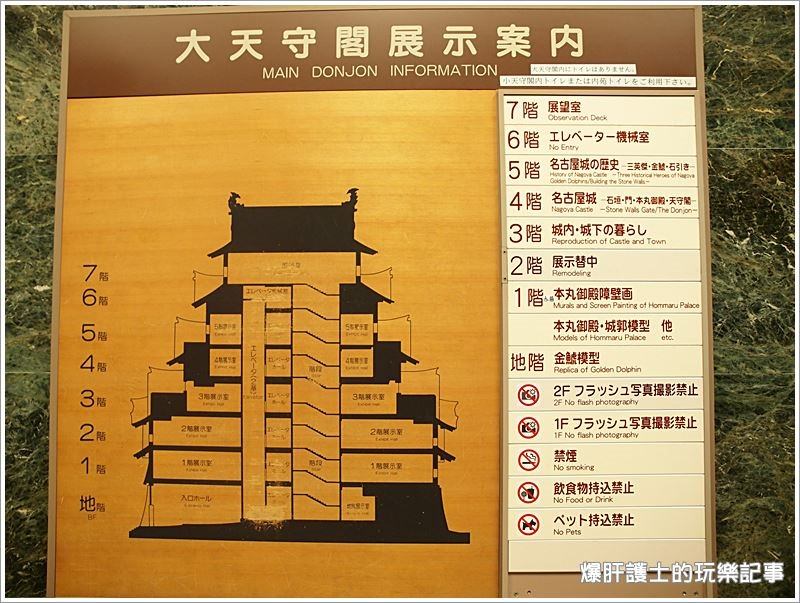 大天守閣展示案内
MAIN DONJON INFORMATION
大天守閣内にトイレはありません。
小天守閣内トイレまたは内苑トイレをご利用下さい。
7階 展望室
Observation Deck
6階 エレベーター機械室
No Entry
5階 名古屋城の歴史 －三英傑・金鯱・石引き－
History of Nagoya Castle －Three Historical Heroes of Nagoya
Golden Dolphins/Building the Stone Walls－
4階 名古屋城 －石垣・門・本丸御殿・天守閣－
Nagoya Castle －Stone Walls Gate/The Donjon－
3階 城内・城下の暮らし
Reproduction of Castle and Town
2階 展示替中
Remodeling
1階 本丸御殿障壁画
Murals and Screen Painting of Hommaru Palace
本丸御殿・城郭模型 他
Models of Hommaru Palace etc.
地階 金鯱模型
Replica of Golden Dolphin
2F フラッシュ写真撮影禁止
2F No flash photography
1F フラッシュ写真撮影禁止
1F No flash photography
禁煙
No smoking
飲食物持込禁止
No Food or Drink
ペット持込禁止
No Pets
7階
6階
5階
4階
3階
2階
1階
地階
BF
エレベーター機械室
5階展示室
Exhibit Hall
5階展示室
Exhibit Hall
4階展示室
Exhibit Hall
エレベータ
ホール
階段
4階展示室
Exhibit Hall
3階展示室
Exhibit Hall
エレベータ
ホール
3階展示室
Exhibit Hall
2階展示室
Exhibit Hall
エレベータ
ホール
2階展示室
Exhibit Hall
1階展示室
Exhibit Hall
エレベータ
ホール
階段
1階展示室
Exhibit Hall
入口ホール
Entrance Hall
地階展示室
爆肝護士的玩樂記事